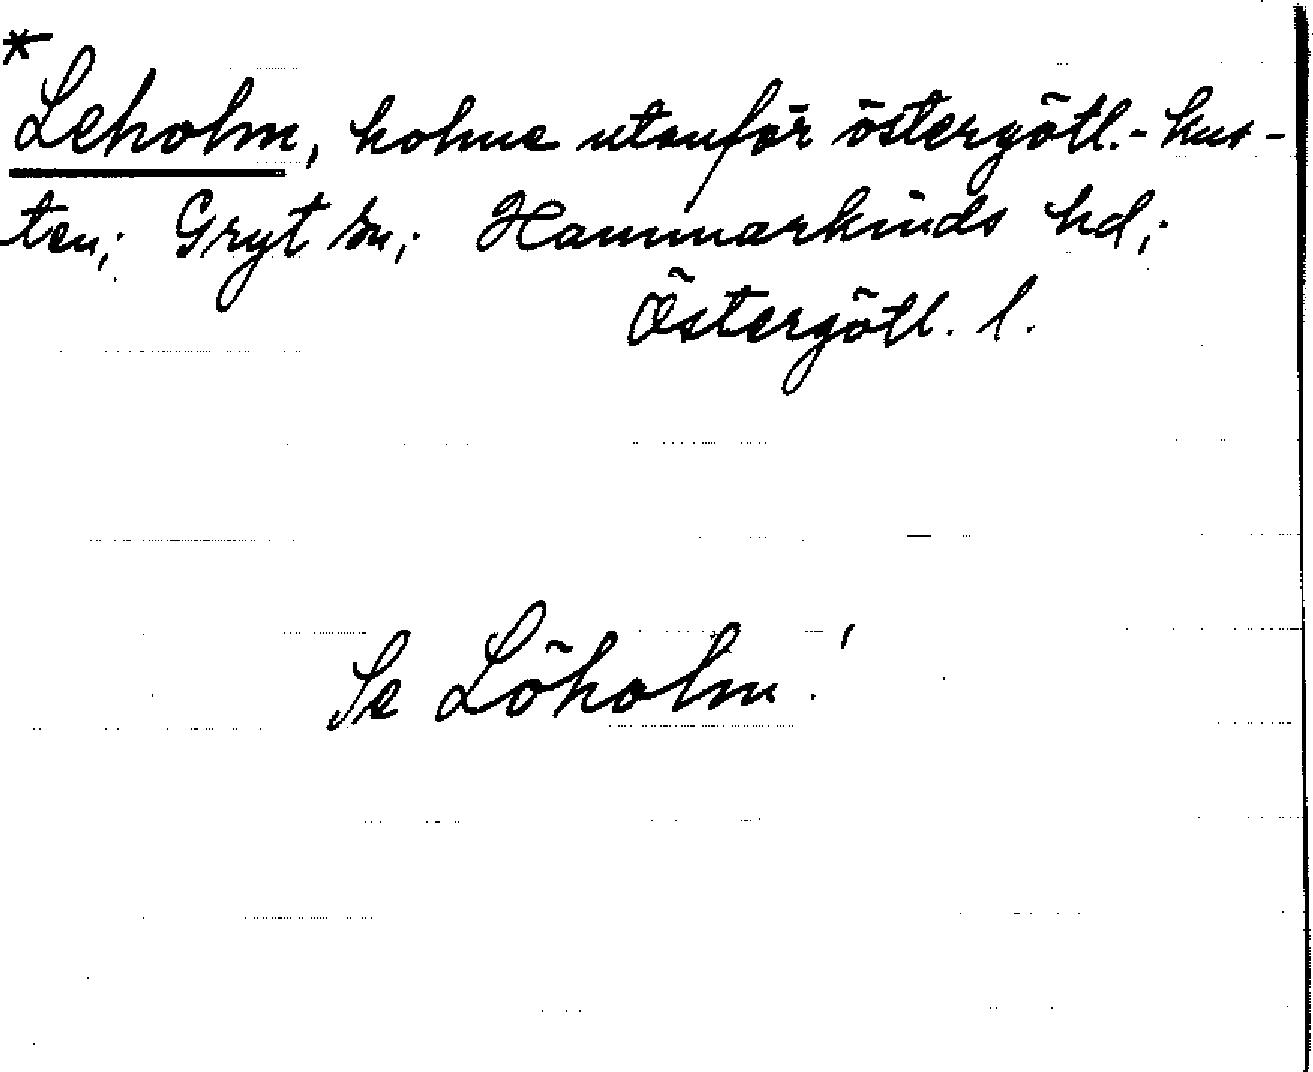 *
Leholm, holme utanför östergötl.-kus-
ten; Gryt sn; Hammarkinds hd;
Östergötl. l.
Se Löholm!